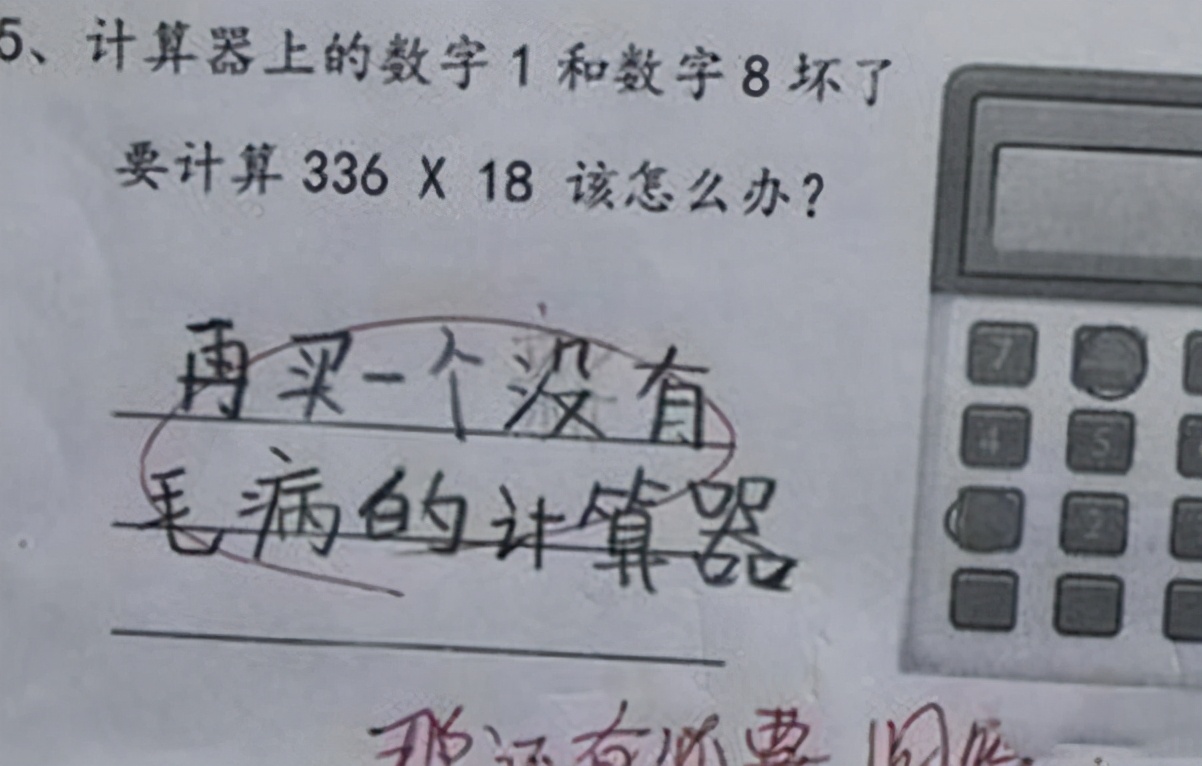 5、计算器上的数字1和数字8坏了
要计算 336 X 18 该怎么办?
再买一个没有
毛病的计算器
7
4 5
2
那还有必要